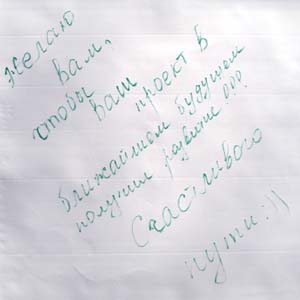 Желаю
вам,
чтобы ваш проект в
ближайшем будущем
получил развитие!!!
Счастливого
пути!!!